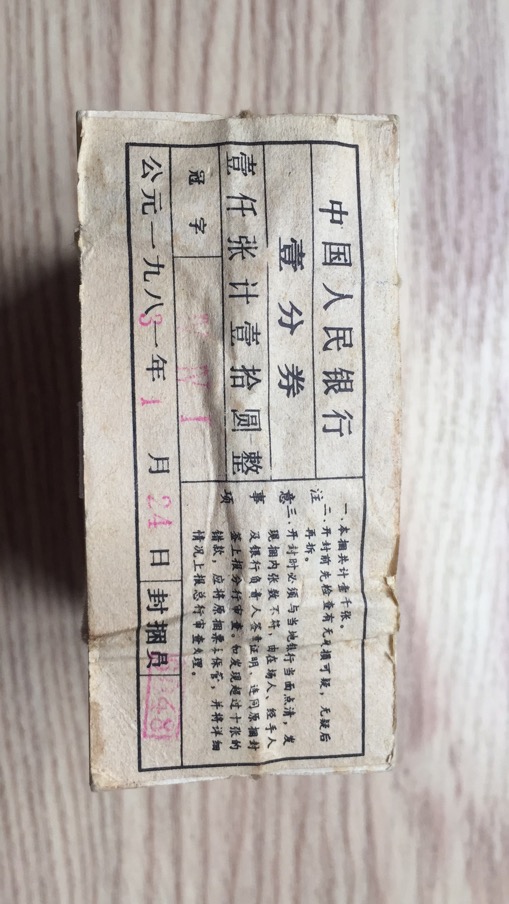 中国人民银行
壹分券
壹仟张计壹拾圆整
冠字
公元一九八3一年1月24日
封捆员
注意事项
一、本捆共计壹千张。
二、开封前先检查有无破损可疑，无疑后
再拆。
三、开封时必须与当地银行当面点清，发
现捆内张数不符，由在场人、经手人
及银行负责人签章证明，连同原捆封
签上报分行审查。如发现超过十张的
错款，应将原捆票子保管，并将详细
情况上报总行审查处理。